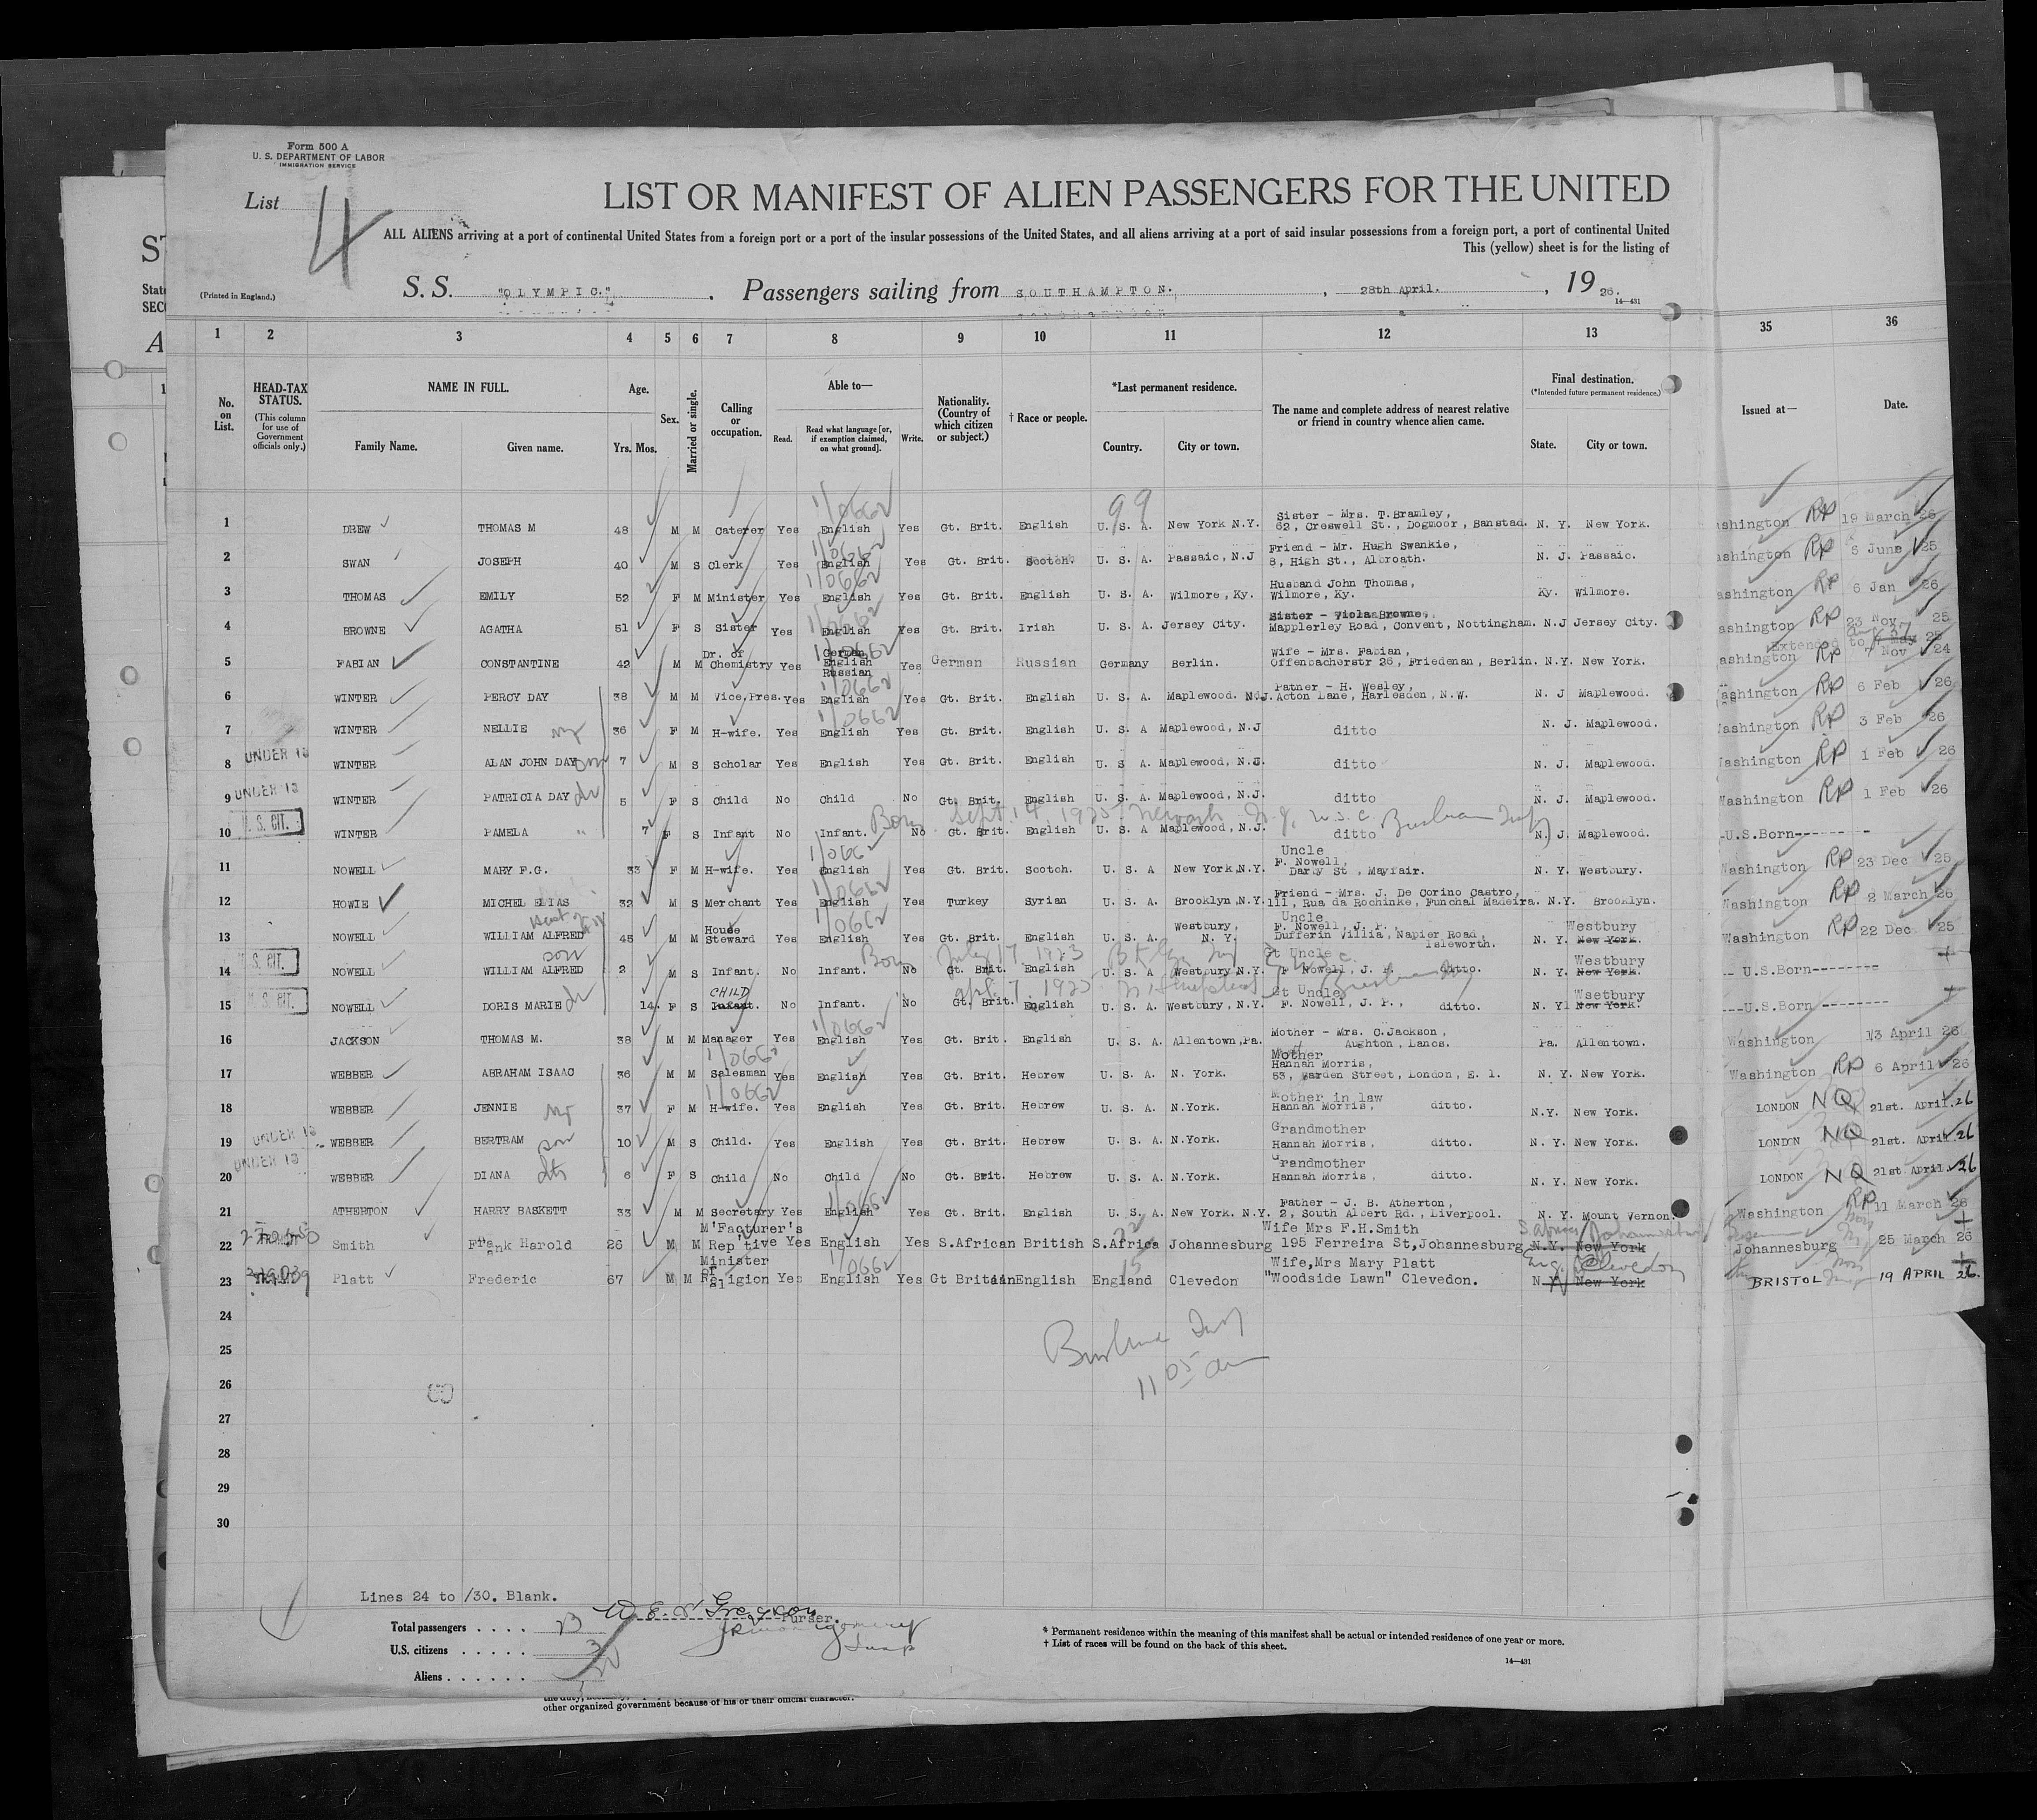 Form 500 A
U. S. DEPARTMENT OF LABOR
IMMIGRATION SERVICE
List 4
LIST OR MANIFEST OF ALIEN PASSENGERS FOR THE UNITED
ALL ALIENS arriving at a port of continental United States from a foreign port or a port of the insular possessions of the United States, and all aliens arriving at a port of said insular possessions from a foreign port, a port of continental United
This (yellow) sheet is for the listing of
(Printed in England.)
S. S. "OLYMPIC." , Passengers sailing from SOUTHAMPTON. , 28th April. , 19 26.
14—431
1 2 3 4 5 6 7 8 9 10 11 12 13 35 36
No. on List. HEAD-TAX STATUS. (This column for use of Government officials only.) NAME IN FULL. Family Name. Given name. Age. Yrs. Mos. Sex. Married or single. Calling or occupation. Able to— Read. Read what language [or, if exemption claimed, on what ground]. Write. Nationality. (Country of which citizen or subject.) † Race or people. *Last permanent residence. Country. City or town. The name and complete address of nearest relative or friend in country whence alien came. Final destination. (*Intended future permanent residence.) State. City or town. Issued at— Date.
1 DREW THOMAS M 48 M M Caterer Yes English Yes Gt. Brit. English U. S. A. New York N.Y. Sister - Mrs. T.Bramley, 62, Creswell St., Dogmoor, Banstad. N. Y. New York. ashington RP 19 March 26
2 SWAN JOSEPH 40 M S Clerk Yes English Yes Gt. Brit. Scotch. U. S. A. Passaic, N.J Friend - Mr. Hugh Swankie, 8, High St., Albroath. N. J. Passaic. ashington RP 5 June 25
3 THOMAS EMILY 52 F M Minister Yes English Yes Gt. Brit. English U. S. A. Wilmore, Ky. Husband John Thomas, Wilmore, Ky. Ky. Wilmore. ashington RP 6 Jan 26
4 BROWNE AGATHA 51 F S Sister Yes English Yes Gt. Brit. Irish U. S. A. Jersey City. Sister - Viola Browne, Mapplerley Road, Convent, Nottingham. N.J Jersey City. ashington RP 23 Nov 25
5 FABIAN CONSTANTINE 42 M M Dr. of Chemistry Yes German English Russian Yes German Russian Germany Berlin. Wife - Mrs. Fabian, Offenbacherstr 26, Friedenan, Berlin. N.Y. New York. ashington RP 7 Nov 24
6 WINTER PERCY DAY 38 M M Vice.Pres. Yes English Yes Gt. Brit. English U. S. A. Maplewood. N.J. Patner - H. Wesley, Acton Lane, Harlesden, N.W. N. J Maplewood. ashington RP 6 Feb 26
7 WINTER NELLIE 36 F M H-wife. Yes English Yes Gt. Brit. English U. S. A Maplewood, N.J ditto N. J. Maplewood. ashington RP 3 Feb 26
8 UNDER 16 WINTER ALAN JOHN DAY son 7 M S Scholar Yes English Yes Gt. Brit. English U. S A. Maplewood, N.J. ditto N. J. Maplewood. ashington RP 1 Feb 26
9 UNDER 16 WINTER PATRICIA DAY 5 F S Child No Child No Gt. Brit. English U. S. A. Maplewood, N.J. ditto N. J. Maplewood. Washington RP 1 Feb 26
Born Sept. 14, 1925 Newark N.J.
10 U. S. CIT. WINTER PAMELA 7 F S Infant No Infant. No Gt. Brit. English U. S. A Maplewood, N.J. ditto N. J. Maplewood. --U.S.Born--------
11 NOWELL MARY F.G. 33 F M H-wife. Yes English Yes Gt. Brit. Scotch. U. S. A New York,N.Y. Uncle F. Nowell, Darby St, Mayfair. N. Y. Westbury. Washington RP 23 Dec 25
12 HOWIE MICHEL ELIAS 32 M S Merchant Yes English Yes Turkey Syrian U. S. A. Brooklyn,N.Y. Friend - Mrs. J. De Corino Castro, 111, Rua da Rochinke, Funchal Madeira. N.Y. Brooklyn. Washington RP 2 March 26
13 NOWELL WILLIAM ALFRED 45 M M House Steward Yes English Yes Gt. Brit. English U. S. A. Westbury, N. Y. Uncle F. Nowell, J. P., Dufferin Villia, Napier Road, Isleworth. N. Y. Westbury New York. Washington RP 22 Dec 25
Born July 17, 1923
14 U. S. CIT. NOWELL WILLIAM ALFRED son 2 M S Infant. No Infant. No Gt. Brit. English U. S. A Westbury,N.Y. Gt Uncle F Nowell, J. P. ditto. N. Y. Westbury New York. -- U.S.Born--------
April 7, 1925
15 U. S. CIT. NOWELL DORIS MARIE 14 F S CHILD Infant. No Infant. No Gt. Brit. English U. S. A. Westbury, N.Y. Gt Uncle F. Nowell, J. P., ditto. N. Y Wsetbury New York. ---U.S.Born --------
16 JACKSON THOMAS M. 38 M M Manager Yes English Yes Gt. Brit. English U. S. A. Allentown,Pa. Mother - Mrs. C.Jackson, Aughton, Lancs. Pa. Allentown. Washington 13 April 26
17 WEBBER ABRAHAM ISAAC 36 M M Salesman Yes English Yes Gt. Brit. Hebrew U. S. A. N. York. Mother Hannah Morris, 53, Barden Street, London, E. 1. N. Y. New York. Washington RP 6 April 26
18 WEBBER JENNIE 37 F M H-wife. Yes English Yes Gt. Brit. Hebrew U. S. A. N.York. Mother in law Hannah Morris, ditto. N.Y. New York. LONDON NQ 21st. April.26
19 UNDER 16 WEBBER BERTRAM son 10 M S Child. Yes English Yes Gt. Brit. Hebrew U. S. A. N.York. Grandmother Hannah Morris, ditto. N. Y. New York. LONDON NQ 21st. April 26
20 UNDER 16 WEBBER DIANA 6 F S Child No Child No Gt. Brit. Hebrew U. S. A. N.York. Grandmother Hannah Morris, ditto. N. Y. New York. LONDON NQ 21st April. 26
21 ATHERTON HARRY BASKETT 33 M M Secretary Yes English Yes Gt. Brit. English U. S. A. New York. N.Y. Father - J. B. Atherton, 2, South Albert Rd., Liverpool. N. Y. Mount Vernon. Washington RP 11 March 26
22 Smith Frank Harold 26 M M M'Facturer's Rep'tive Yes English Yes S.African British S.Africa Johannesburg Wife Mrs F.H.Smith 195 Ferreira St,Johannesburg S. Africa Johannesburg N.Y. New York Johannesburg 25 March 26
23 Platt Frederic 67 M M Minister of Religion Yes English Yes Gt Britain English England Clevedon Wife,Mrs Mary Platt "Woodside Lawn" Clevedon. Eng. Clevedon N.Y New York BRISTOL 19 APRIL 26.
24
25
11 05 am
26
27
28
29
30
Lines 24 to /30. Blank.
Purser.
Total passengers . . . . 23
U.S. citizens . . . . . 3
Aliens . . . . . . 20
* Permanent residence within the meaning of this manifest shall be actual or intended residence of one year or more.
† List of races will be found on the back of this sheet.
14—431
other organized government because of his or their official character.